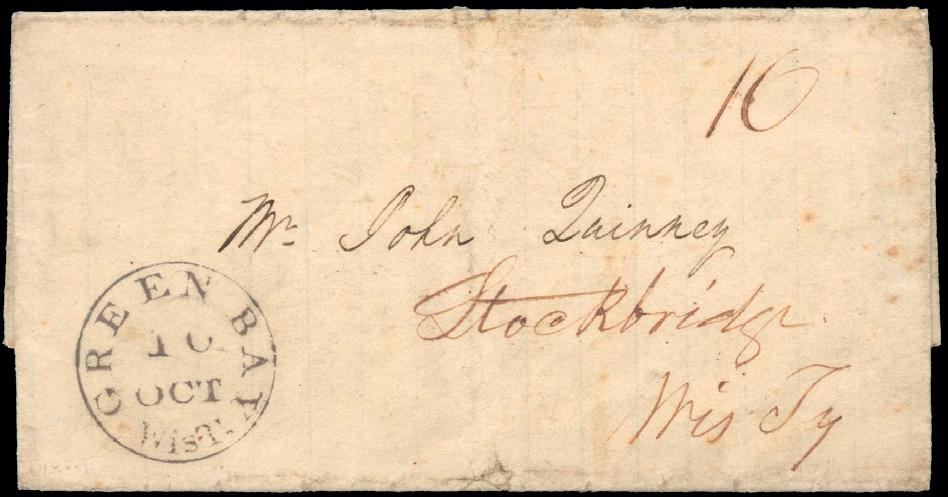 10
Mr. John Quinney
Stockbridge
Wis Ty
GREEN BAY
OCT
WisT.